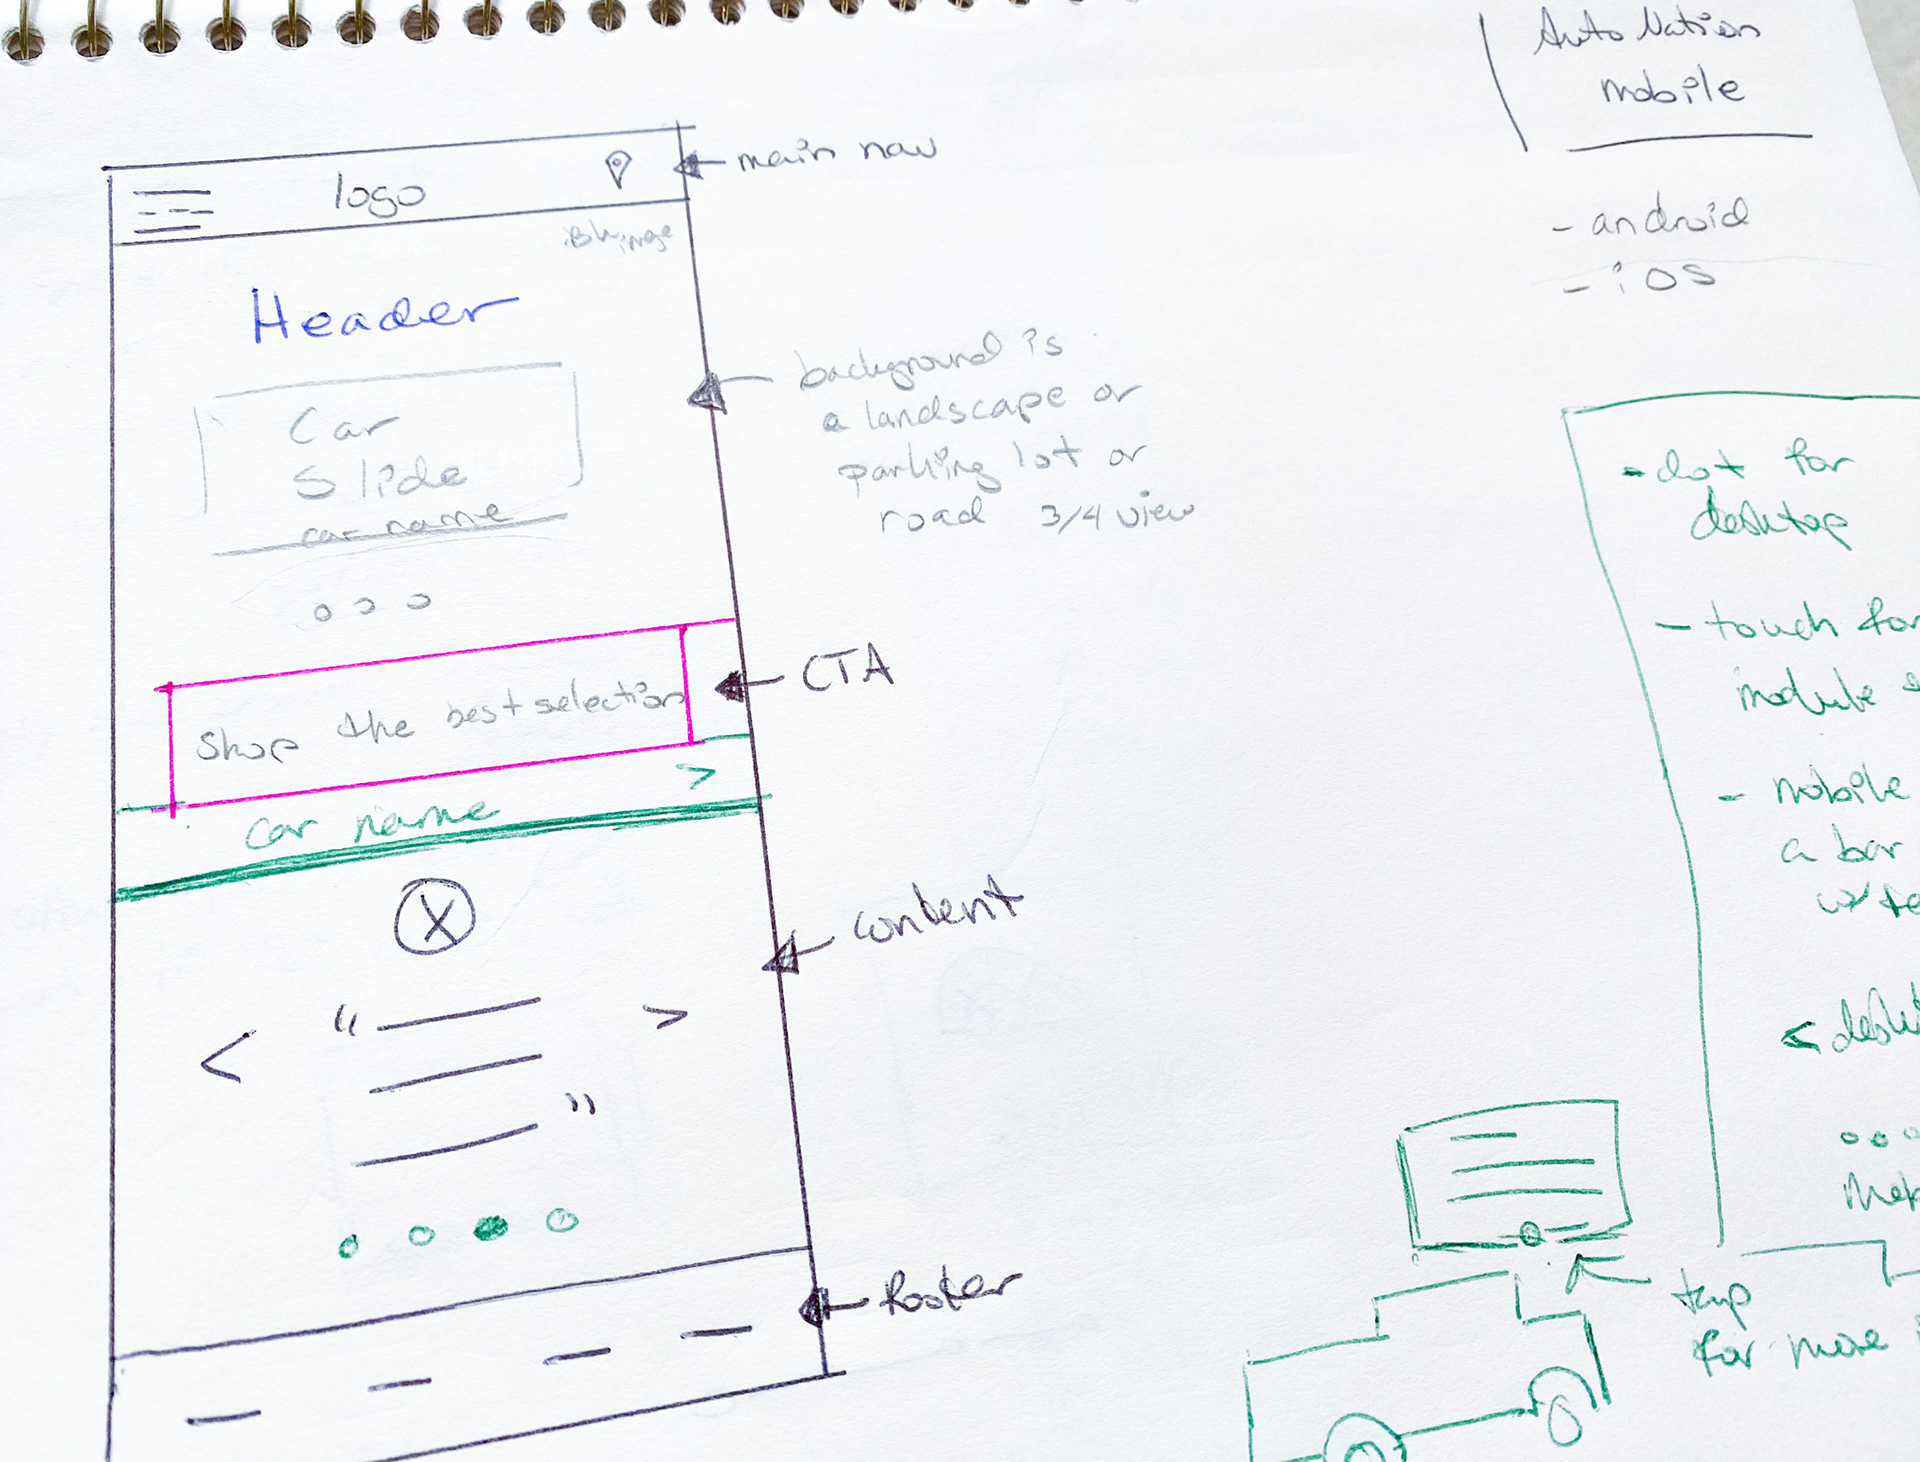 Auto Nation
mobile
- android
- iOS
logo
main nav
Header
Car
Slide
car name
background is
a landscape or
parking lot or
road 3/4 view
Shop the best selection
CTA
>
car name
X
content
< “
>
”
footer
- dot for
desktop
- touch for
module
- mobile
a bar
w/ te
<
tap
for more